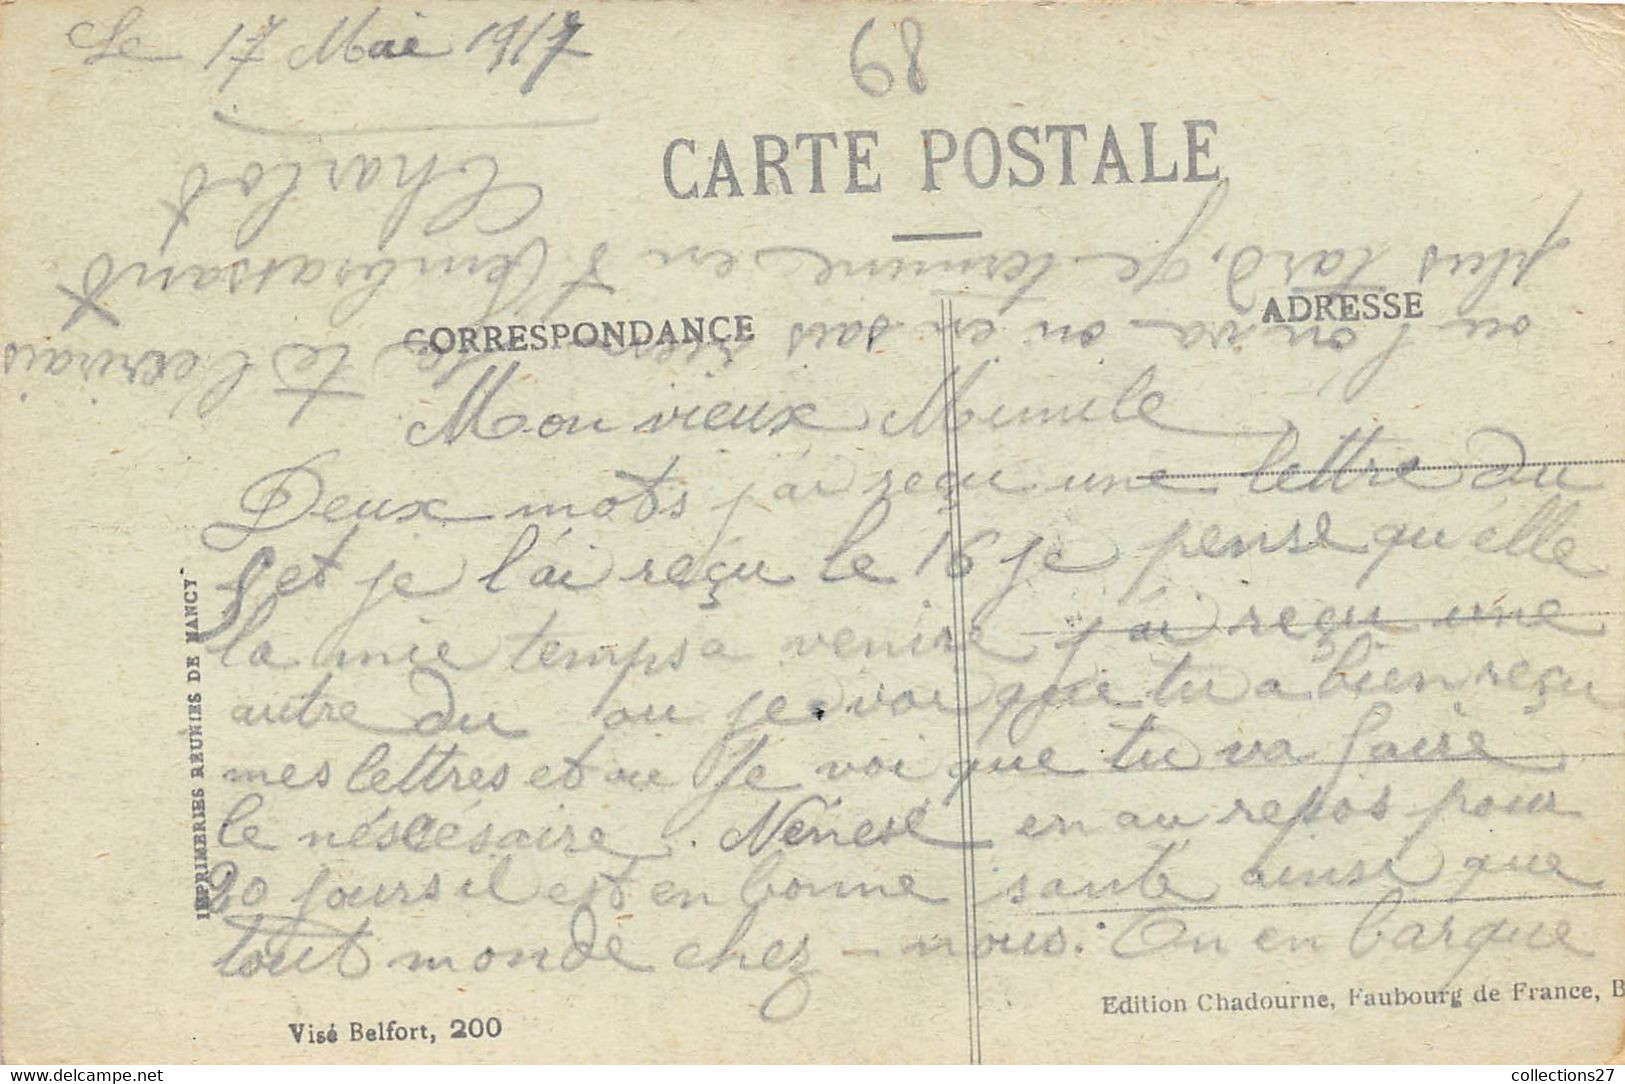 Le 17 Mai 1917
89
CARTE POSTALE
CORRESPONDANCE
ADRESSE
Mon vieux Mimile
Deux mots j'ai reçu une lettre du
9 et je l'ai reçu le 16 je pense qu'elle
la mie temps a venire j'ai reçu une
autre du ou je voi que tu a bien reçu
mes lettres et ou Je voi que tu va faire
le néscésaire. Nénesé en au repos pour
20 jours il est en bonne santé ainsi que
tout monde chez-nous. On en barque
ou l'on va on en sais rien je te l'ecrirais
plus tard, je termine en t'embrassant
Charlot
IMPRIMERIES REUNIES DE NANCY
Visé Belfort, 200
Edition Chadourne, Faubourg de France, B
collections27